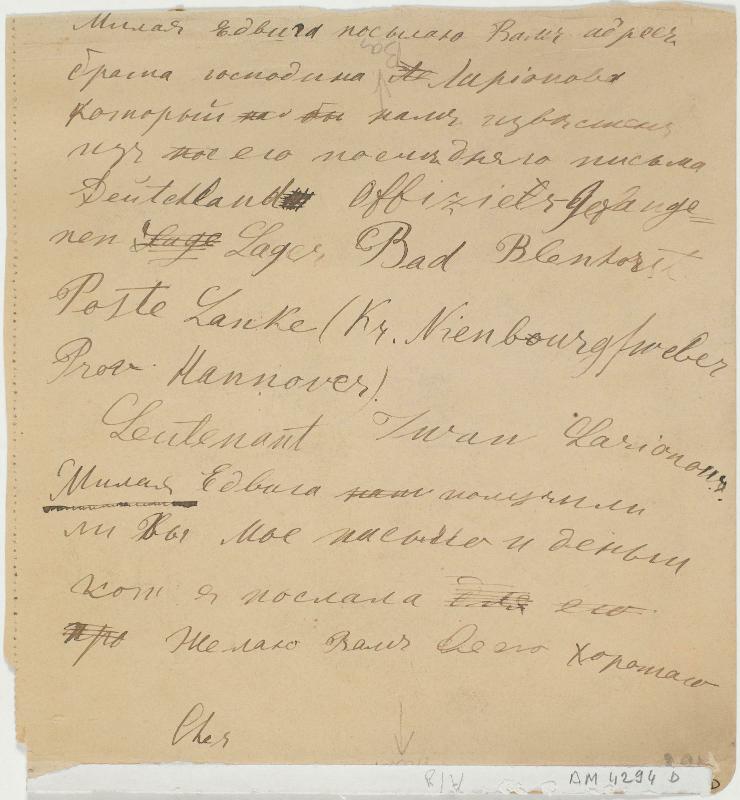 Милая Едвига посылаю Вамъ адресъ
брата господина Ларіонова
который на бы намъ извѣстенъ
изъ пос его послѣдняго письма
Deutchland Offizier Gefange=
nen Lage Lager, Bad Blenhorst
Poste Lanke (Kr. Nienbourg/weber
Prov. Hannover).
Leutenant Iwan Larionow.
Милая Едвига нат получили
ли Вы мое письмо и деньги
кот я послала для его
про Желаю Вамъ всего хорошаго
Cher
AM 4294 D